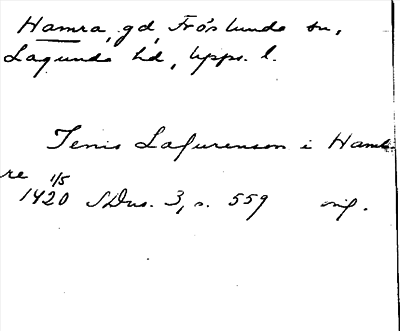 Hamra, gd, Fröslunda sn,
Lagunda hd, Upps. l.
Jenis Lafurenson i Hamb
re 1/5
1420 SDns. 3, s. 559 orig.